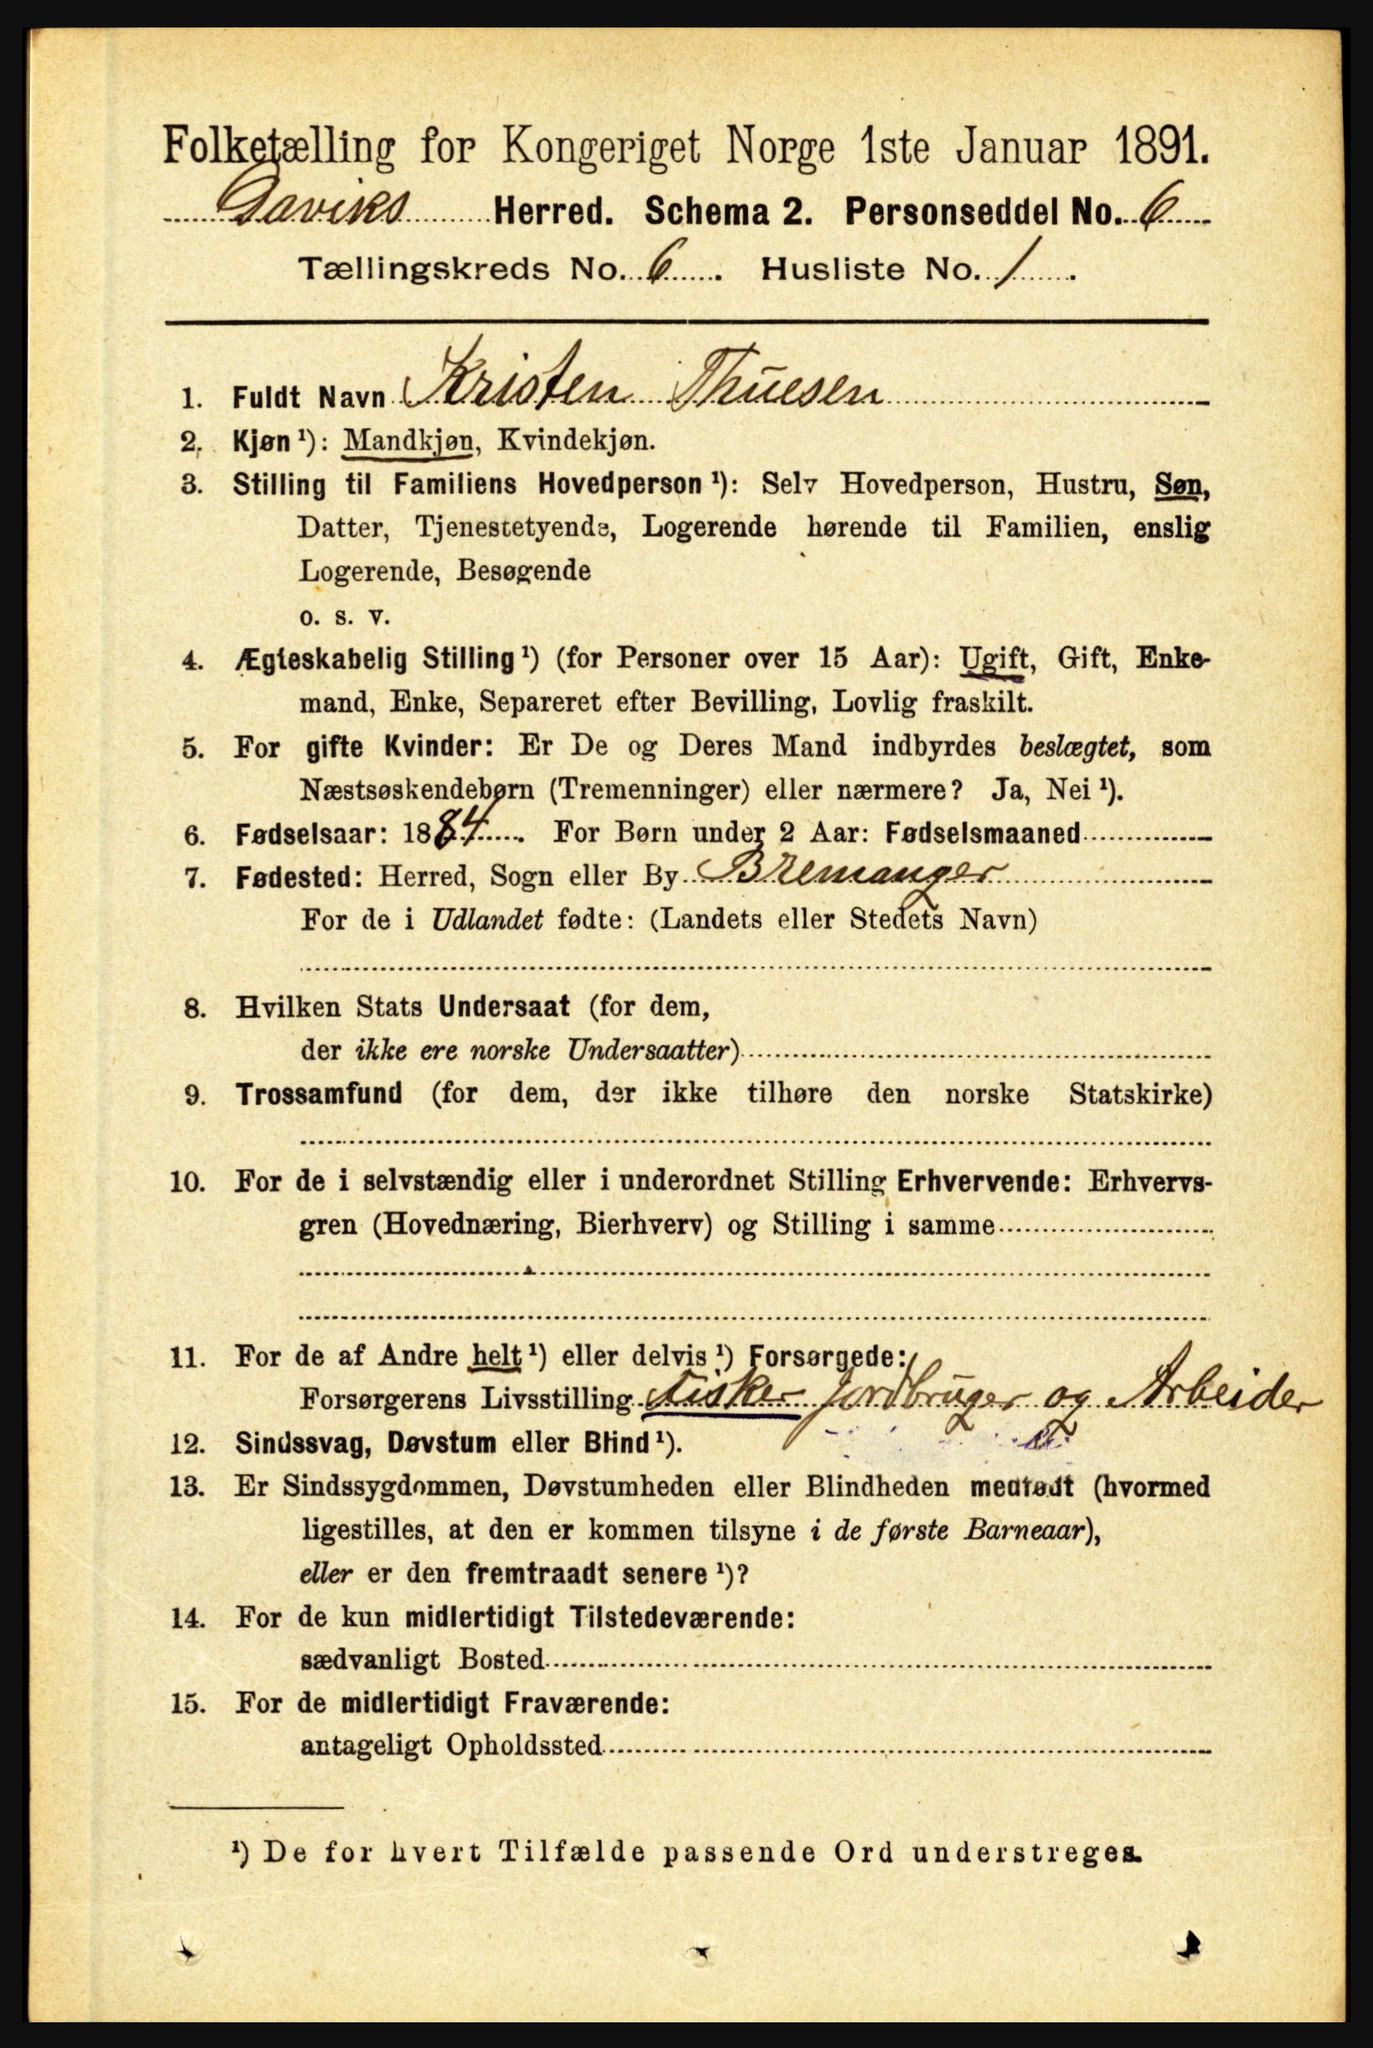 Folketælling for Kongeriget Norge 1ste Januar 1891.
Daviks Herred. Schema 2. Personseddel No. 6
Tællingskreds No. 6. Husliste No. 1.
1. Fuldt Navn Kristen Thuesen
2. Kjøn ¹): Mandkjøn, Kvindekjøn.
3. Stilling til Familiens Hovedperson ¹): Selv Hovedperson, Hustru, Søn,
Datter, Tjenestetyende, Logerende hørende til Familien, enslig
Logerende, Besøgende
o. s. v.
4. Ægteskabelig Stilling ¹) (for Personer over 15 Aar): Ugift, Gift, Enke-
mand, Enke, Separeret efter Bevilling, Lovlig fraskilt.
5. For gifte Kvinder: Er De og Deres Mand indbyrdes beslægtet, som
Næstsøskendebørn (Tremenninger) eller nærmere? Ja, Nei ¹).
6. Fødselsaar: 1884. For Børn under 2 Aar: Fødselsmaaned
7. Fødested: Herred, Sogn eller By Bremanger
For de i Udlandet fødte: (Landets eller Stedets Navn)
8. Hvilken Stats Undersaat (for dem,
der ikke ere norske Undersaatter)
9. Trossamfund (for dem, der ikke tilhøre den norske Statskirke)
10. For de i selvstændig eller i underordnet Stilling Erhvervende: Erhvervs-
gren (Hovednæring, Bierhverv) og Stilling i samme
11. For de af Andre helt ¹) eller delvis ¹) Forsørgede:
Forsørgerens Livsstilling Fisker Jordbruger og Arbeider
12. Sindssvag, Døvstum eller Blind ¹).
13. Er Sindssygdommen, Døvstumheden eller Blindheden medfødt (hvormed
ligestilles, at den er kommen tilsyne i de første Barneaar),
eller er den fremtraadt senere ¹)?
14. For de kun midlertidigt Tilstedeværende:
sædvanligt Bosted
15. For de midlertidigt Fraværende:
antageligt Opholdssted
¹) De for hvert Tilfælde passende Ord understreges.